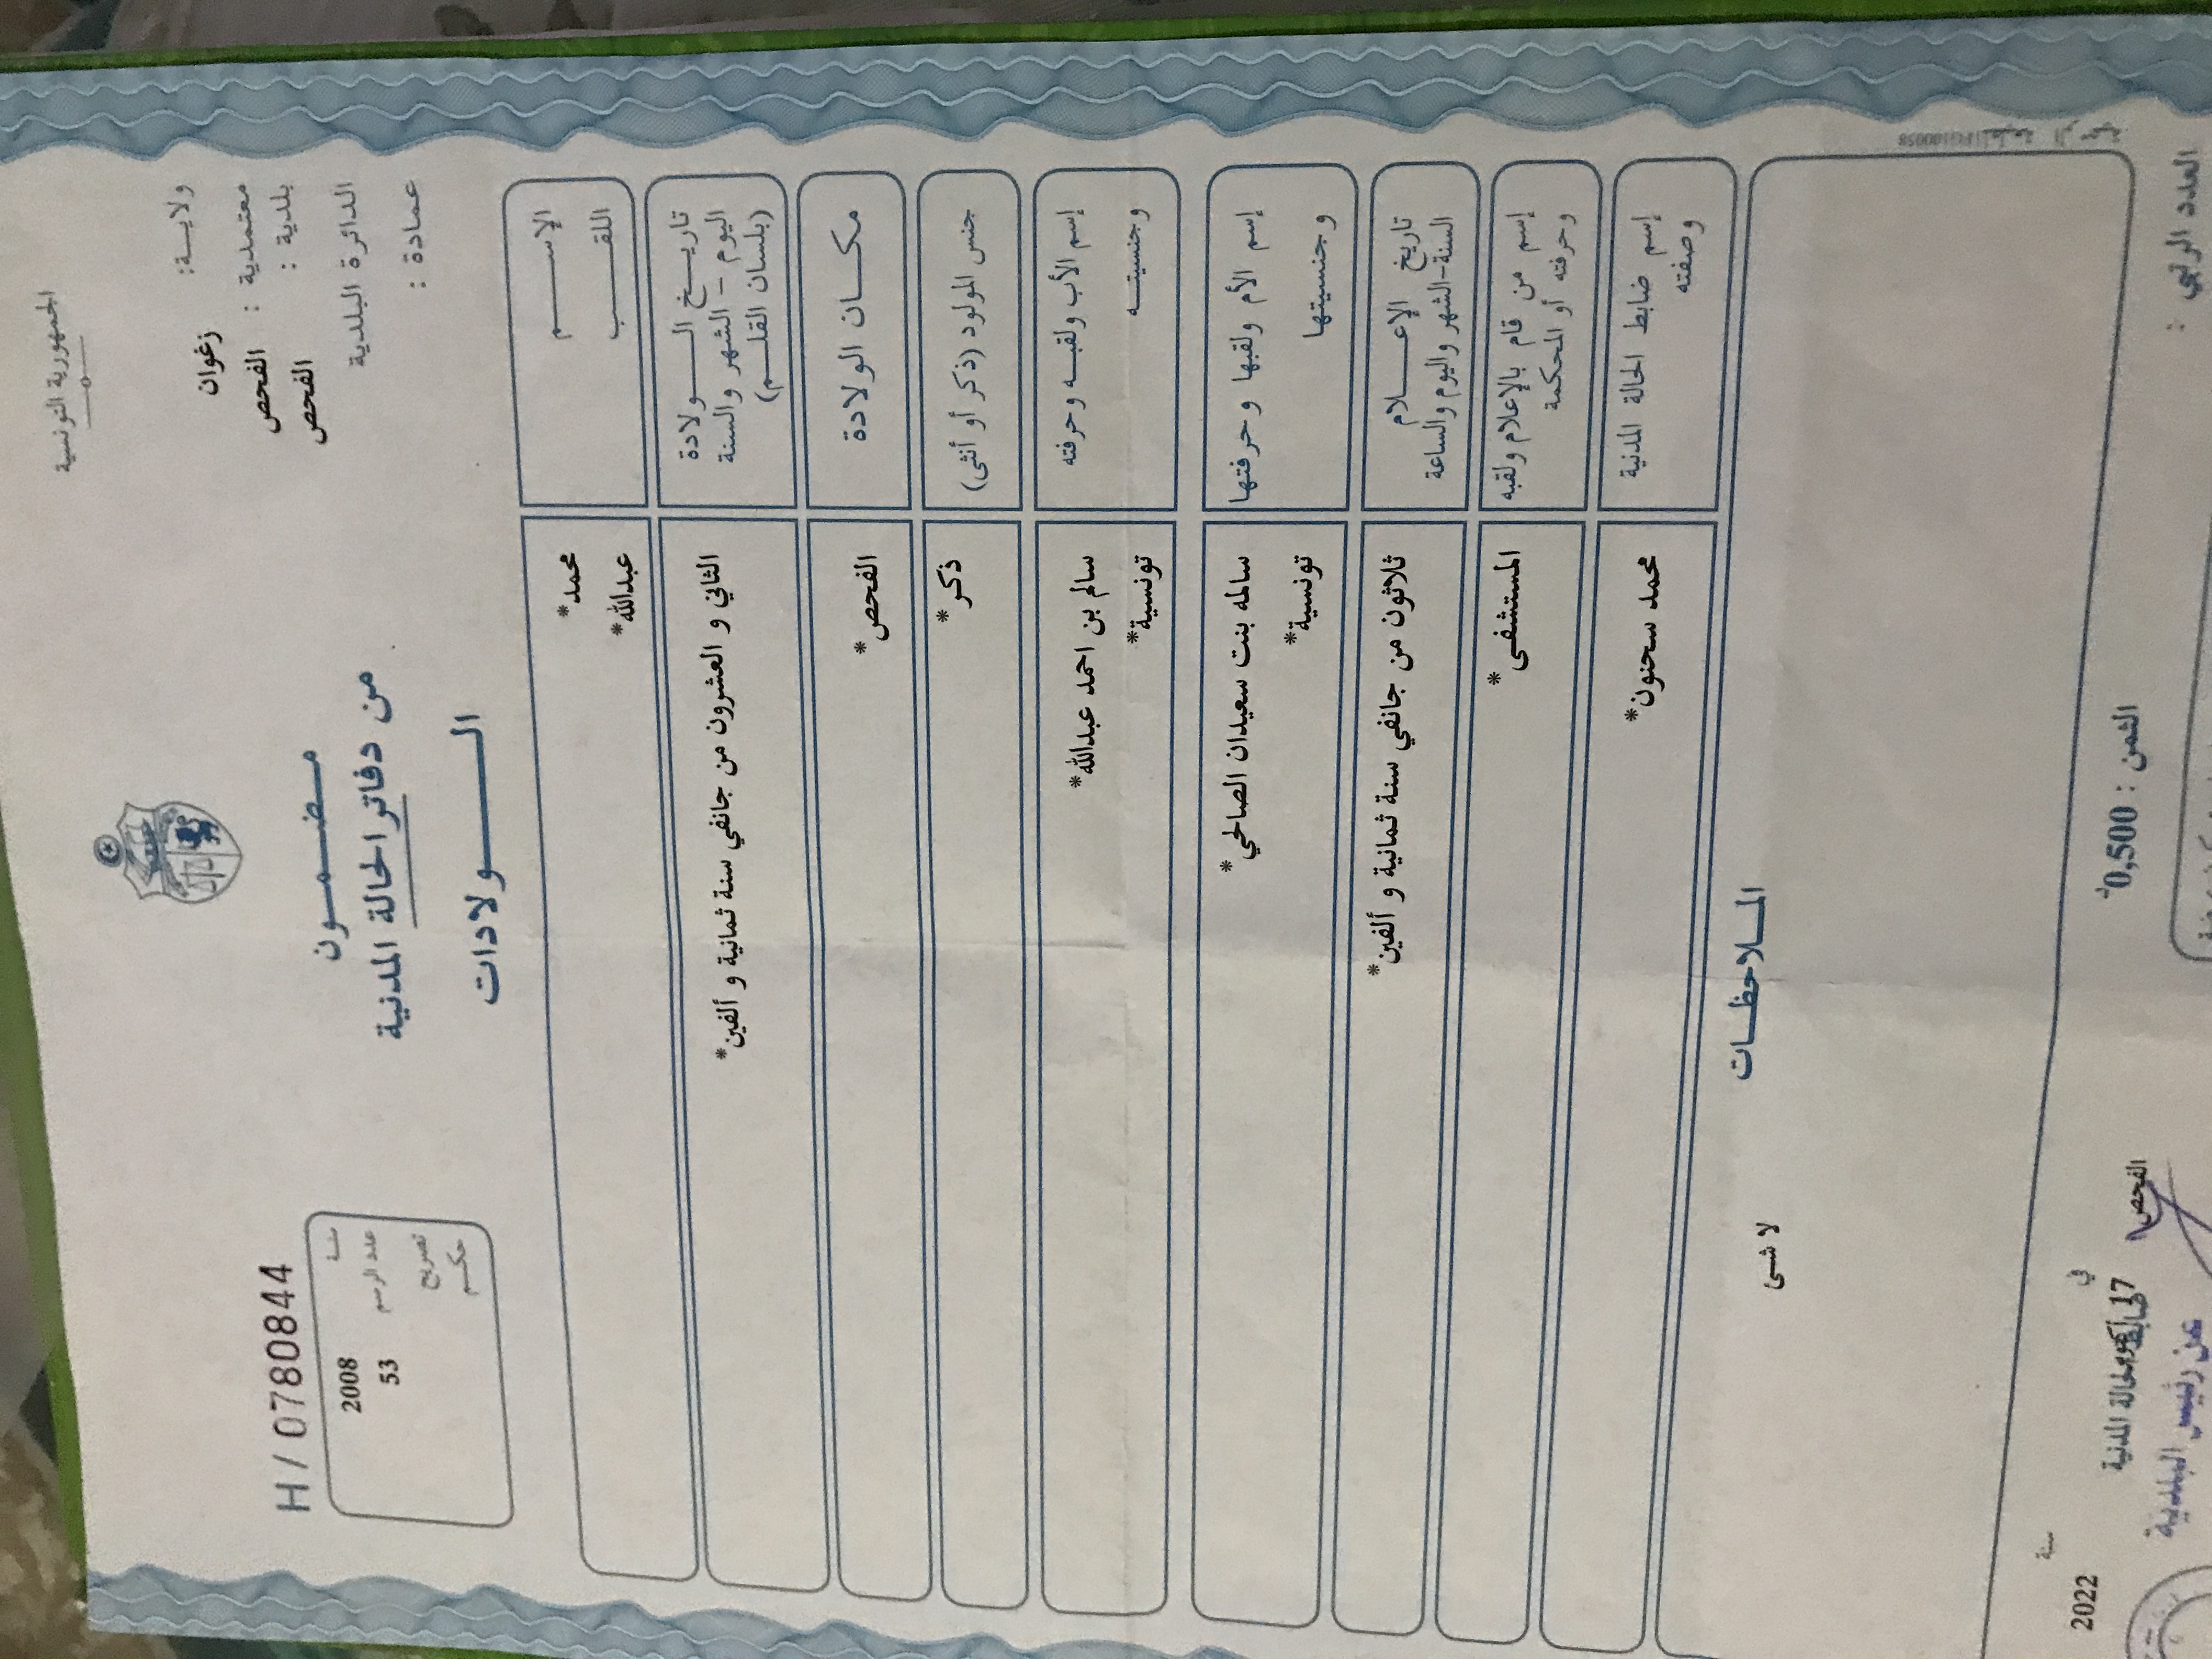 الجمهورية التونسية
ولايــة: زغوان
معتمدية : الفحص
بلدية : الفحص
الدائرة البلدية
عمادة :
مـضـمـون
من دفاتر الحالة المدنية
الـــولادات
H / 0780844
سنة 2008
عدد الرسم 53
تصريح
حكم
الإســـم محمد*
اللقـــب عبدالله*
تاريــخ الـــولادة
اليوم - الشهر والسنة
(بلسان القلـم)
الثاني و العشرون من جانفي سنة ثمانية و ألفين*
مكــان الولادة الفحص*
جنس المولود (ذكر أو أنثى) ذكر*
إسم الأب ولقبـه وحرفته سالم بن احمد عبدالله*
وجنسيتــه تونسية*
إسم الأم ولقبها وحرفتها سالمه بنت سعيدان الصالحي*
وجنسيتها تونسية*
تاريخ الإعـــلام
السنة-الشهر واليوم والساعة
ثلاثون من جانفي سنة ثمانية و ألفين*
إسم من قام بالإعلام ولقبه
وحرفته أو المحكمة
المستشفى*
إسم ضابط الحالة المدنية
وصفته
محمد سحنون*
المــلاحظــات
لا شئ
الثمن : 0,500د
العدد الرتبي :
الفحص في 17
سنة 2022
الحالة المدنية
عن رئيس البلدية